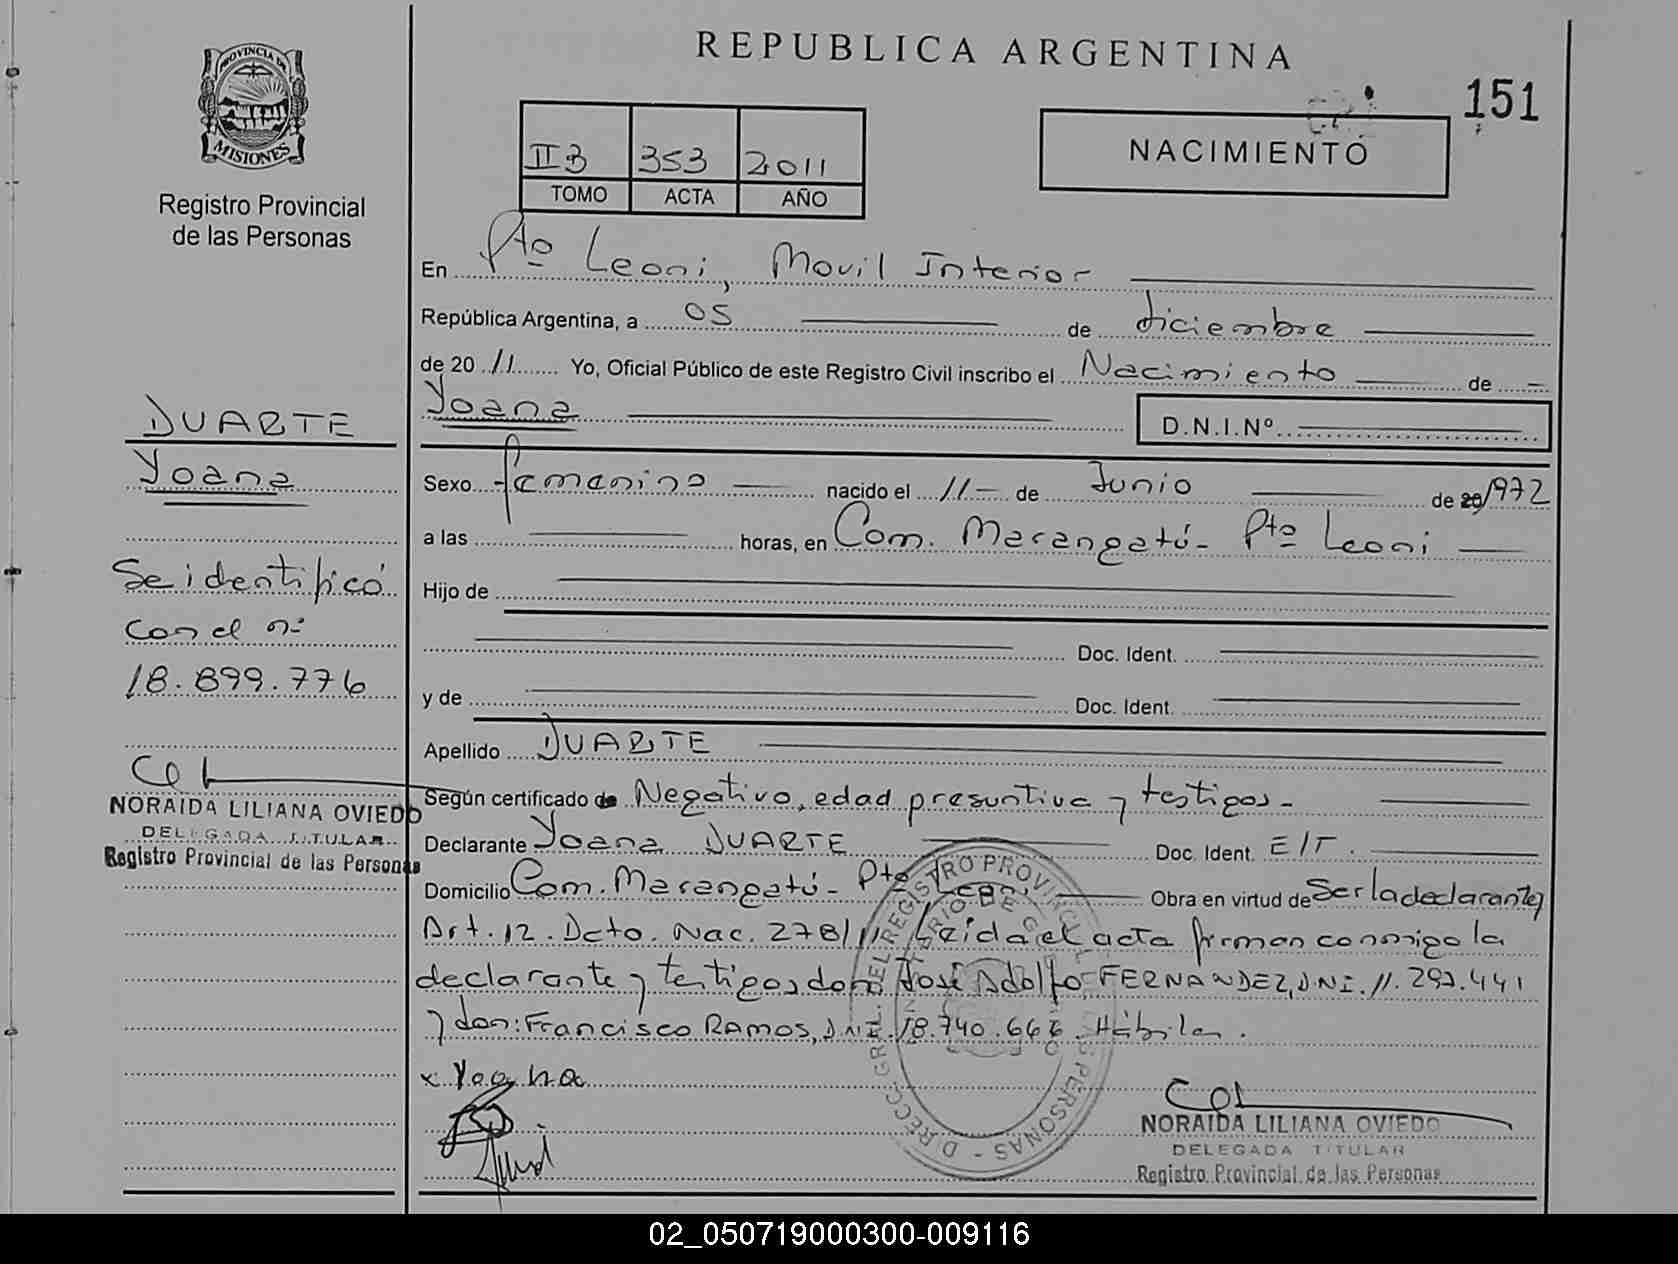 REPUBLICA ARGENTINA
151
PROVINCIA DE
MISIONES
Registro Provincial
de las Personas
II B 353 2011
TOMO ACTA AÑO
NACIMIENTO
En Pto Leoni, Movil Interior
República Argentina, a 05 de diciembre
de 20 11 Yo, Oficial Público de este Registro Civil inscribo el Nacimiento de
Yoana D.N.I.Nº
DUARTE
Yoana
Se identificó
con el nº
18.899.776
NORAIDA LILIANA OVIEDO
DELEGADA TITULAR
Registro Provincial de las Personas
Sexo femenino nacido el 11 de Junio de 20 1972
a las horas, en Com. Marangatú - Pto Leoni
Hijo de
Doc. Ident.
y de Doc. Ident.
Apellido DUARTE
Según certificado de Negativo, edad presuntiva y testigos -
Declarante Yoana DUARTE Doc. Ident. E/T.
Domicilio Com. Marangatú - Pto Leoni Obra en virtud de Ser la declarante y
Art. 12. Dcto. Nac. 278/11 Leida el acta firman conmigo la
declarante y testigos don: José Adolfo FERNANDEZ, DNI. 11.297.441
y don: Francisco RAMOS, DNI. 18.740.666. Hábiles.
x Yoana
NORAIDA LILIANA OVIEDO
DELEGADA TITULAR
Registro Provincial de las Personas
02_050719000300-009116